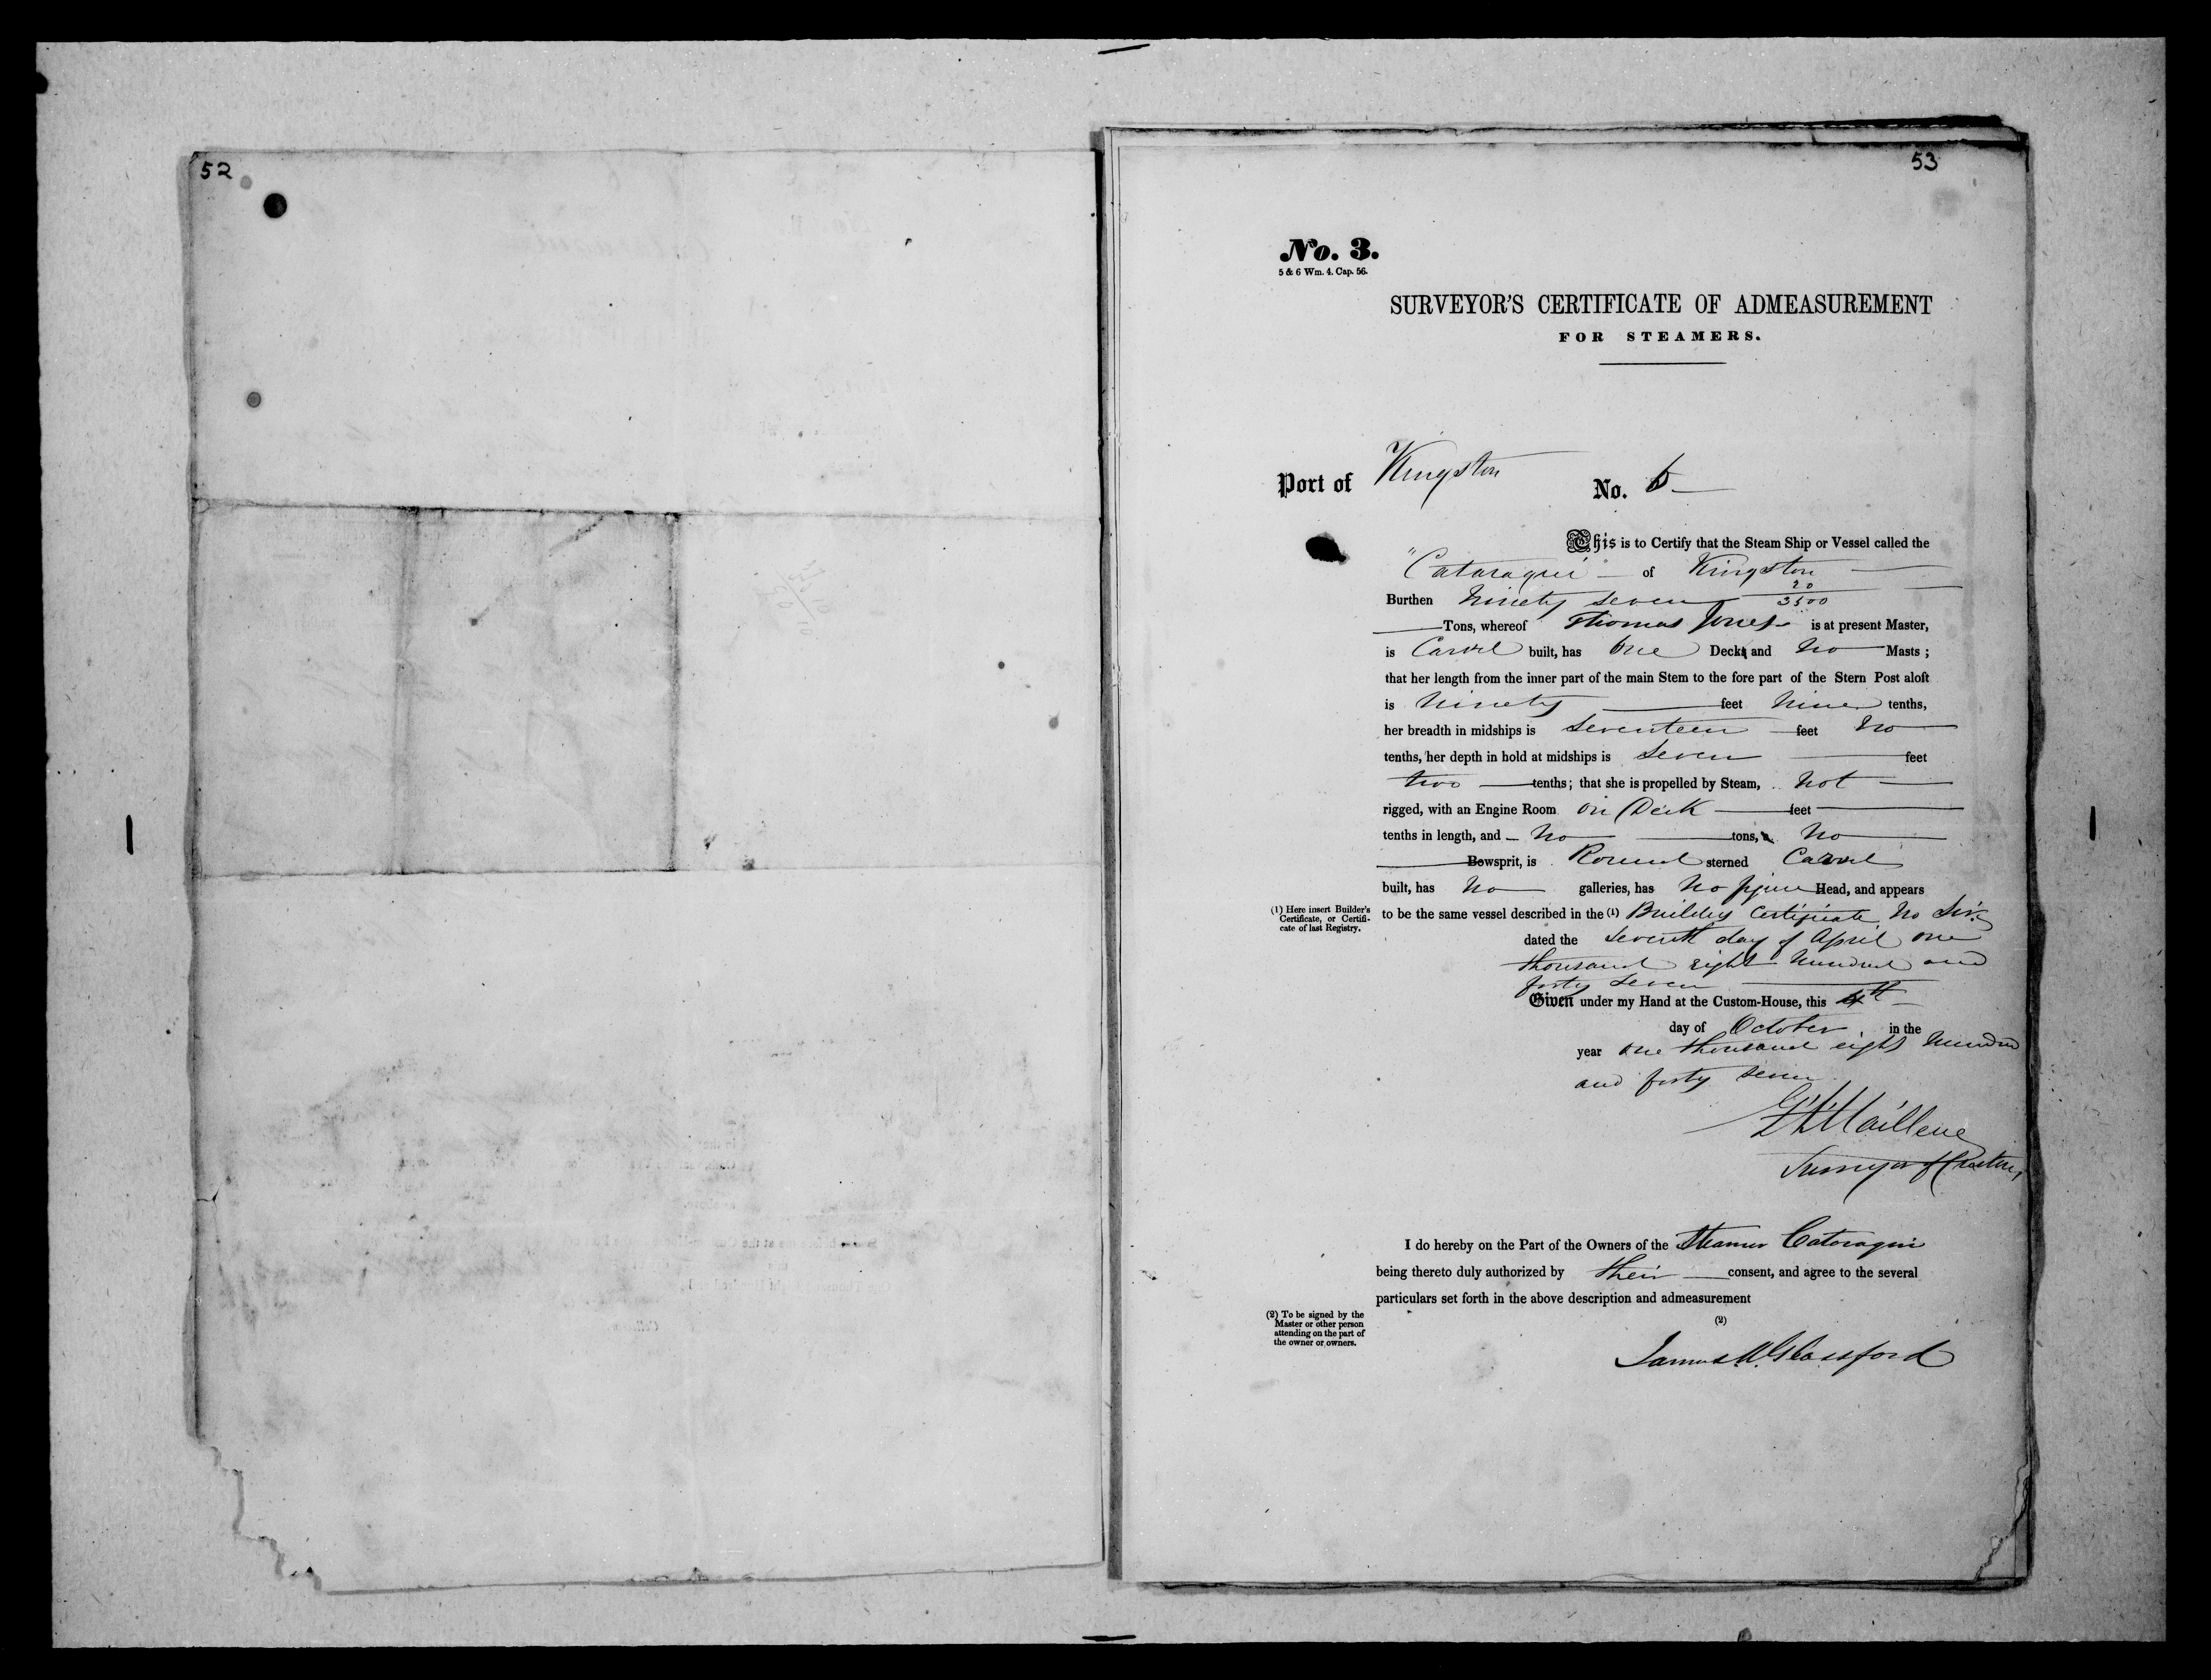 52
53
No. 3.
5 & 6 Wm. 4. Cap. 56.
SURVEYOR'S CERTIFICATE OF ADMEASUREMENT
FOR STEAMERS.
Port of Kingston No. 6
This is to Certify that the Steam Ship or Vessel called the
"Cataraqui of Kingston
Burthen Ninety seven 20/3500
Tons, whereof Thomas Jones is at present Master,
is Carvel built, has One Deck and No Masts;
that her length from the inner part of the main Stem to the fore part of the Stern Post aloft
is Ninety feet Nine tenths,
her breadth in midships is Seventeen feet No
tenths, her depth in hold at midships is Seven feet
two tenths; that she is propelled by Steam, Not
rigged, with an Engine Room on Deck feet
tenths in length, and No tons, No
Bowsprit, is Round sterned Carvel
built, has No galleries, has No figure Head, and appears
(1) Here insert Builder's
Certificate, or Certifi-
cate of last Registry.
to be the same vessel described in the (1) Builders Certificate No Six
dated the Seventh day of April one
thousand eight hundred and
forty seven
Given under my Hand at the Custom-House, this 4th
day of October in the
year One thousand eight hundred
and forty seven
Surveyor of Customs
I do hereby on the Part of the Owners of the Steamer Cataraqui
being thereto duly authorized by their consent, and agree to the several
particulars set forth in the above description and admeasurement
(2) To be signed by the
Master or other person
attending on the part of
the owner or owners.
(2)
James A. Glassford